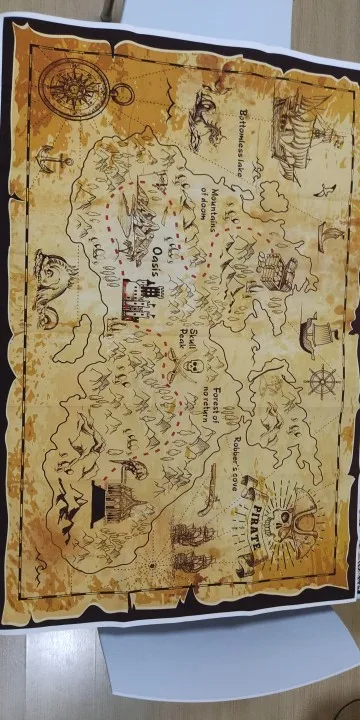 Bottomless lake
Mountains
of doom
Oasis
Skull
Peak
Forest of
no return
Robber's cove
PIRATE